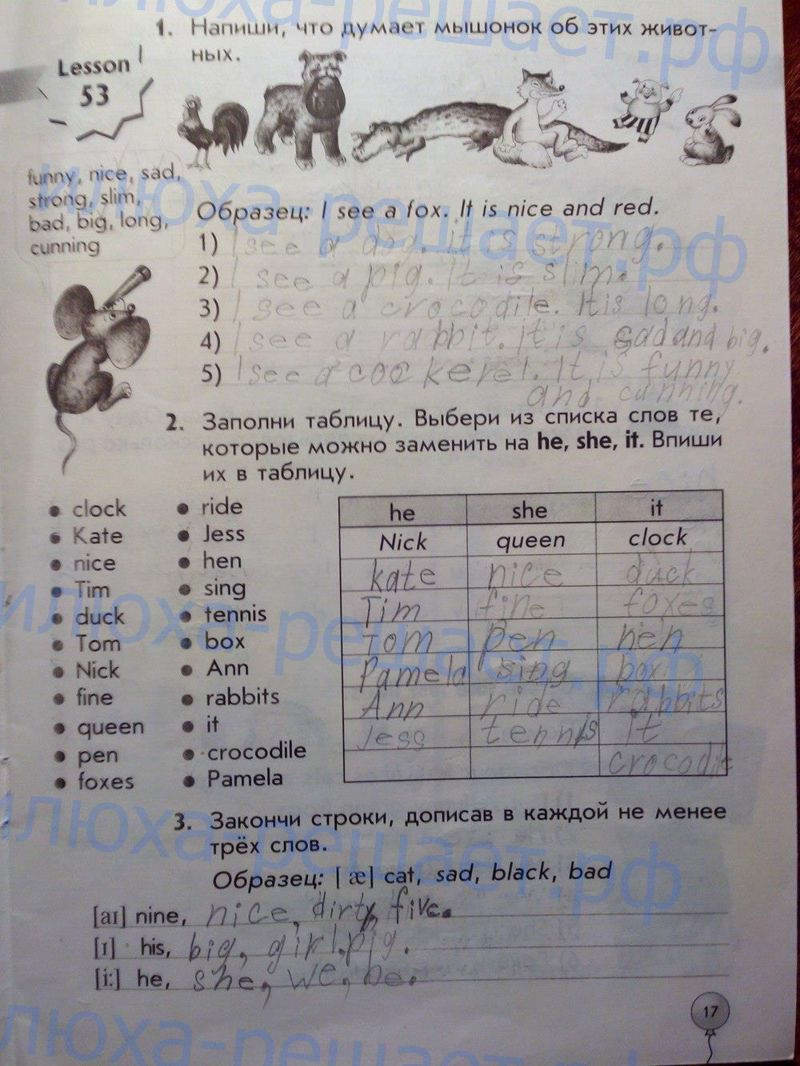 1. Напиши, что думает мышонок об этих живот-
ных.
Lesson
53
funny, nice, sad,
strong, slim,
bad, big, long,
cunning
Образец: I see a fox. It is nice and red.
1) I see a dog. It is strong.
2) I see a pig. It is slim.
3) I see a crocodile. It is long.
4) I see a rabbit. It is sad and big.
5) I see a cockerel. It is funny
and cunning.
2. Заполни таблицу. Выбери из списка слов те,
которые можно заменить на he, she, it. Впиши
их в таблицу.
clock
Kate
nice
Tim
duck
Tom
Nick
fine
queen
pen
foxes
ride
Jess
hen
sing
tennis
box
Ann
rabbits
it
crocodile
Pamela
he she it
Nick queen clock
kate nice duck
Tim fine foxes
Tom pen hen
Pamela sing box
Ann ride rabbits
Jess tennis it
crocodile
3. Закончи строки, дописав в каждой не менее
трёх слов.
Образец: [æ] cat, sad, black, bad
[aɪ] nine, nice, dirty, five.
[ɪ] his, big, girl, pig.
[i:] he, she, we, be.
17
илюха-решает.рф